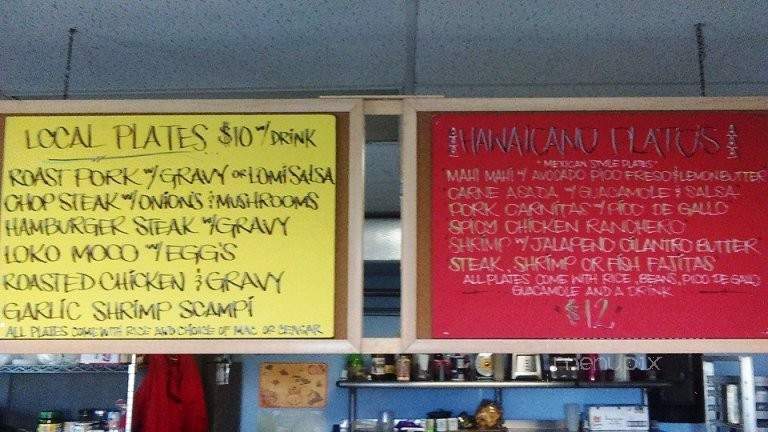 LOCAL PLATES $10 W/ DRINK
ROAST PORK W/ GRAVY OR LOMI SALSA
CHOP STEAK W/ ONION'S & MUSHROOMS
HAMBURGER STEAK W/ GRAVY
LOKO MOCO W/ EGG'S
ROASTED CHICKEN & GRAVY
GARLIC SHRIMP SCAMPI
ALL PLATES COME WITH RICE AND CHOICE OF MAC OR CENGAR
HAWAICANU PLATO'S
"MEXICAN STYLE PLATES"
MAHI MAHI W/ AVOCADO PICO FRESO & LEMON BUTTER
CARNE ASADA W/ GUACAMOLE & SALSA
PORK CARNITAS W/ PICO DE GALLO
SPICY CHICKEN RANCHERO
SHRIMP W/ JALAPENO CILANTRO BUTTER
STEAK, SHRIMP OR FISH FAJITAS
ALL PLATES COME WITH RICE, BEANS, PICO DE GALLO
GUACAMOLE AND A DRINK
$12
menupix